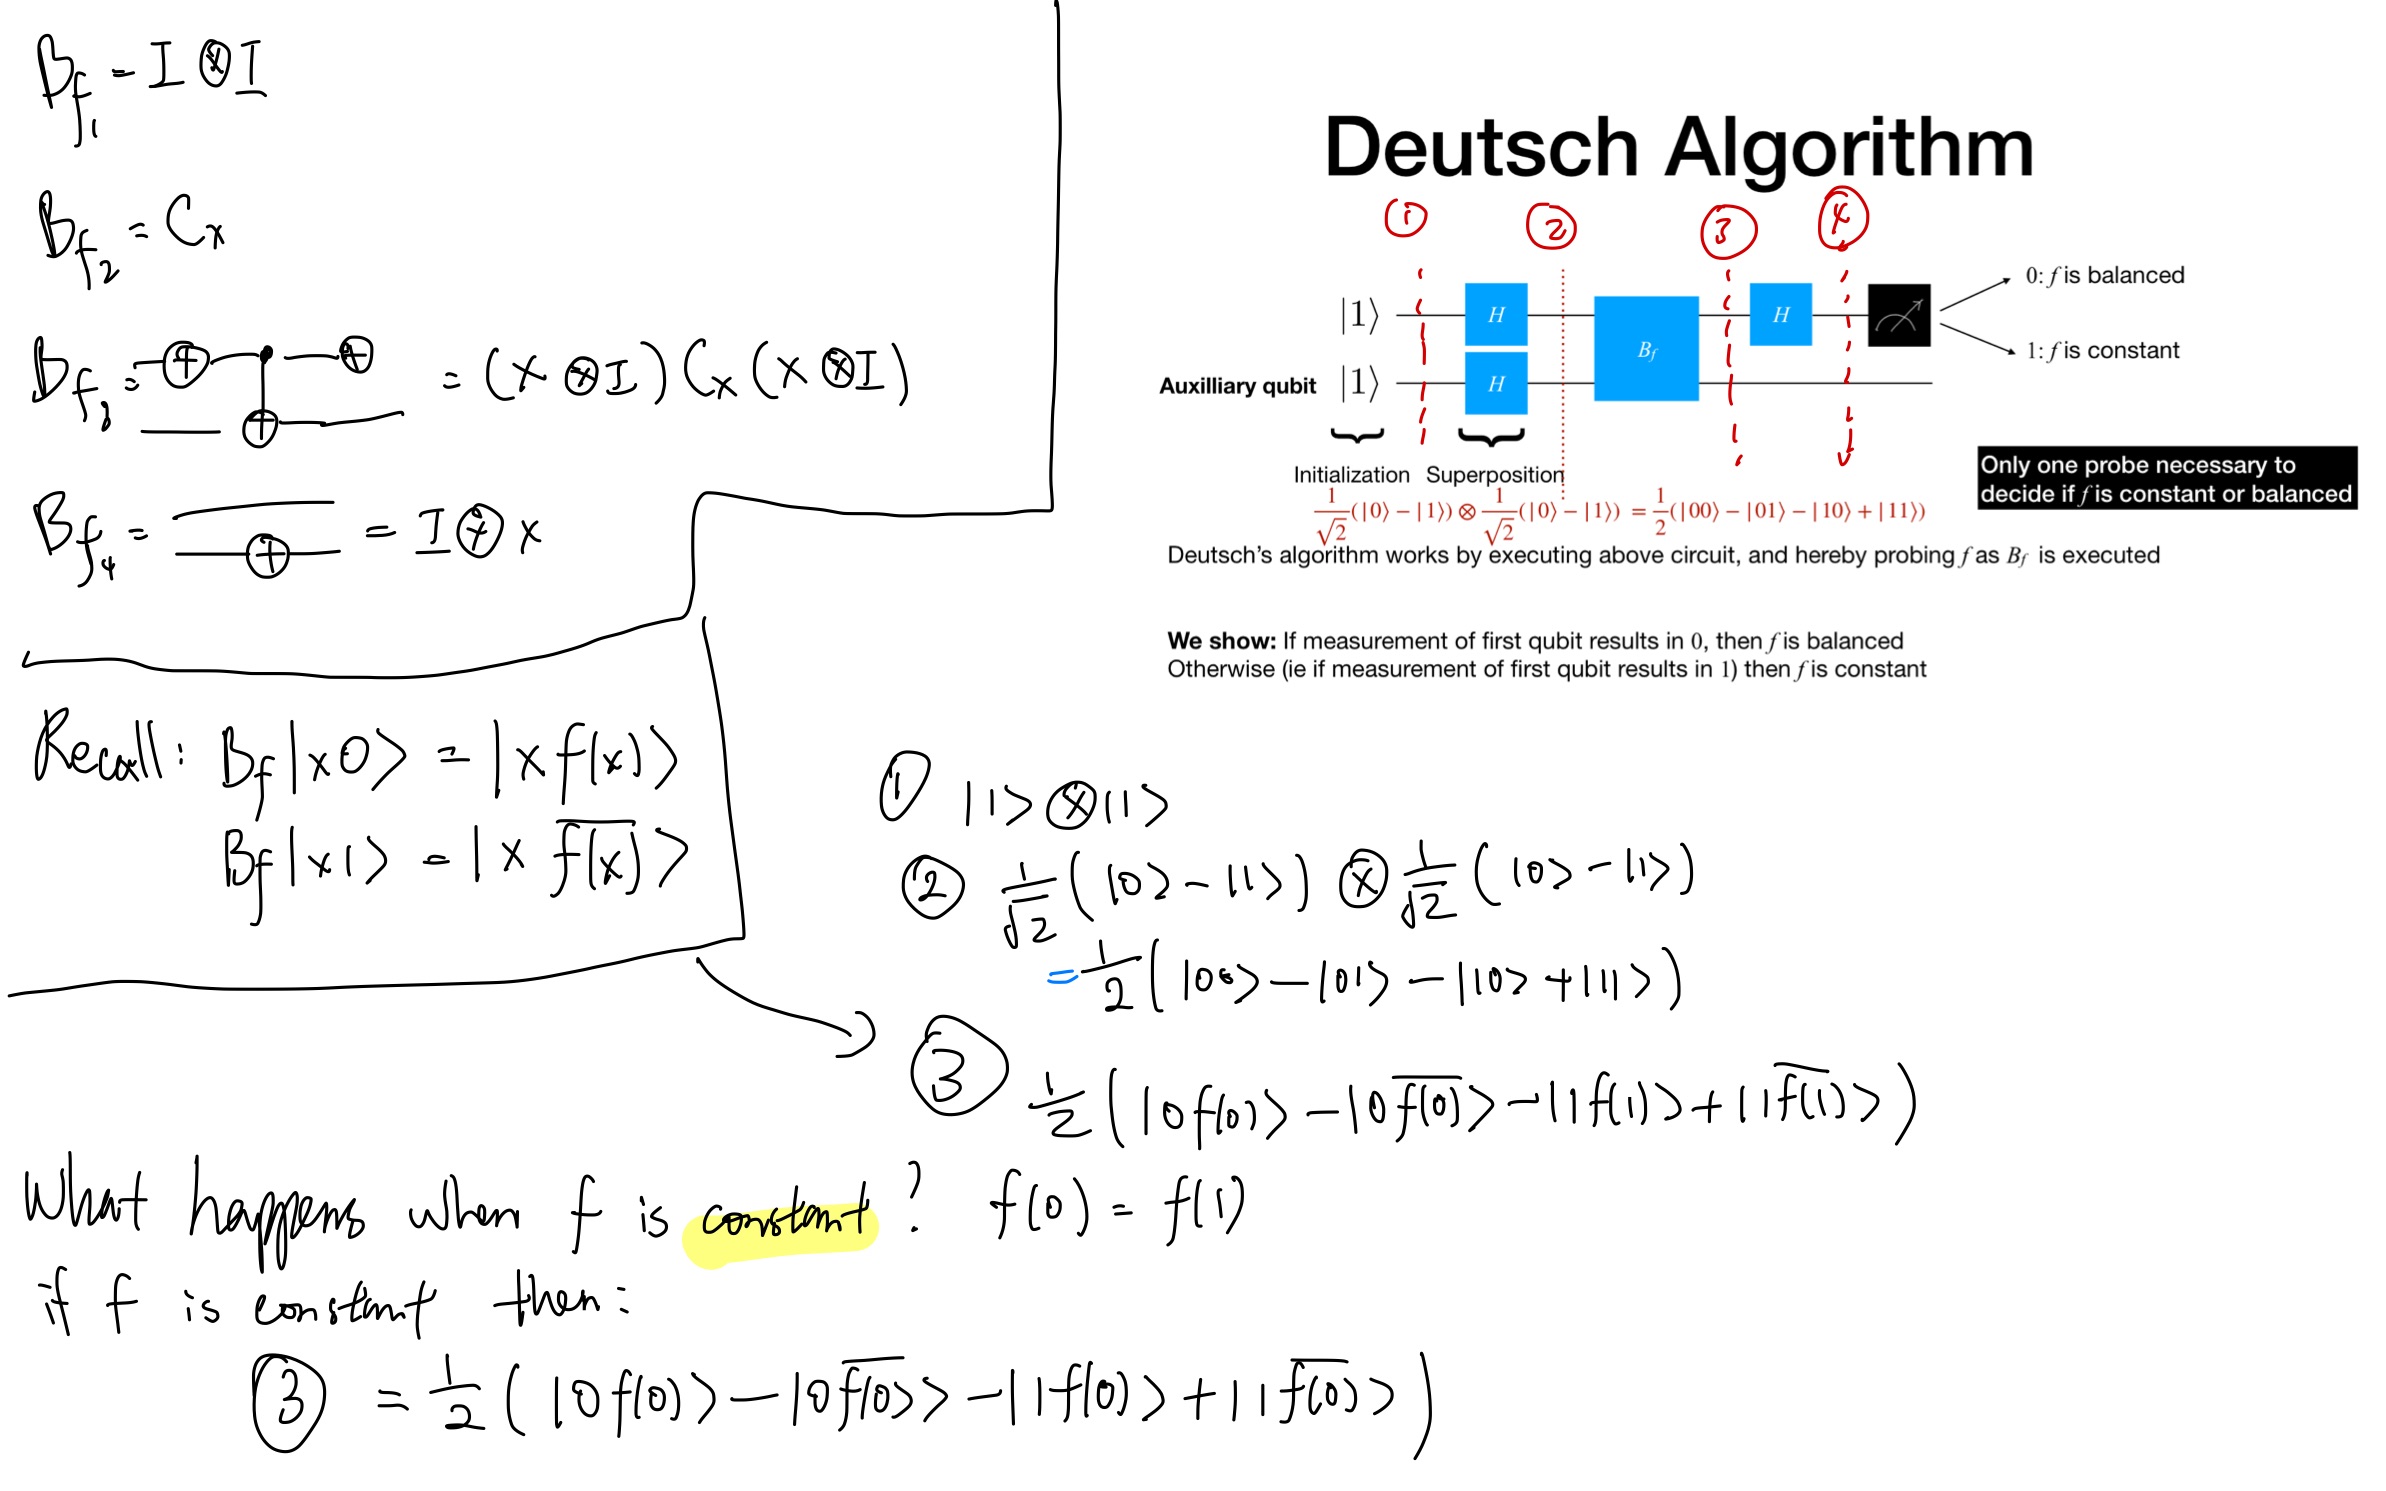 B_{f_1} = I ⊗ I
B_{f_2} = C_x
B_{f_3} = = (X ⊗ I) C_x (X ⊗ I)
B_{f_4} = = I ⊗ X
Recall: B_f |x0> = |x f(x)>
B_f |x1> = |x \overline{f(x)}>
Deutsch Algorithm
① ② ③ ④
|1⟩ H B_f H
Auxilliary qubit |1⟩ H
0: f is balanced
1: f is constant
Initialization Superposition
\frac{1}{√2}(|0⟩ − |1⟩) ⊗ \frac{1}{√2}(|0⟩ − |1⟩) = \frac{1}{2}(|00⟩ − |01⟩ − |10⟩ + |11⟩)
Only one probe necessary to
decide if f is constant or balanced
Deutsch's algorithm works by executing above circuit, and hereby probing f as B_f is executed
We show: If measurement of first qubit results in 0, then f is balanced
Otherwise (ie if measurement of first qubit results in 1) then f is constant
① |1> ⊗ |1>
② \frac{1}{√2}(|0> − |1>) ⊗ \frac{1}{√2}(|0> − |1>)
= \frac{1}{2}(|00> − |01> − |10> + |11>)
③ \frac{1}{2}(|0f(0)> − |0\overline{f(0)}> − |1f(1)> + |1\overline{f(1)}>)
What happens when f is constant? f(0) = f(1)
if f is constant then:
③ = \frac{1}{2}(|0f(0)> − |0\overline{f(0)}> − |1f(0)> + |1\overline{f(0)}>)